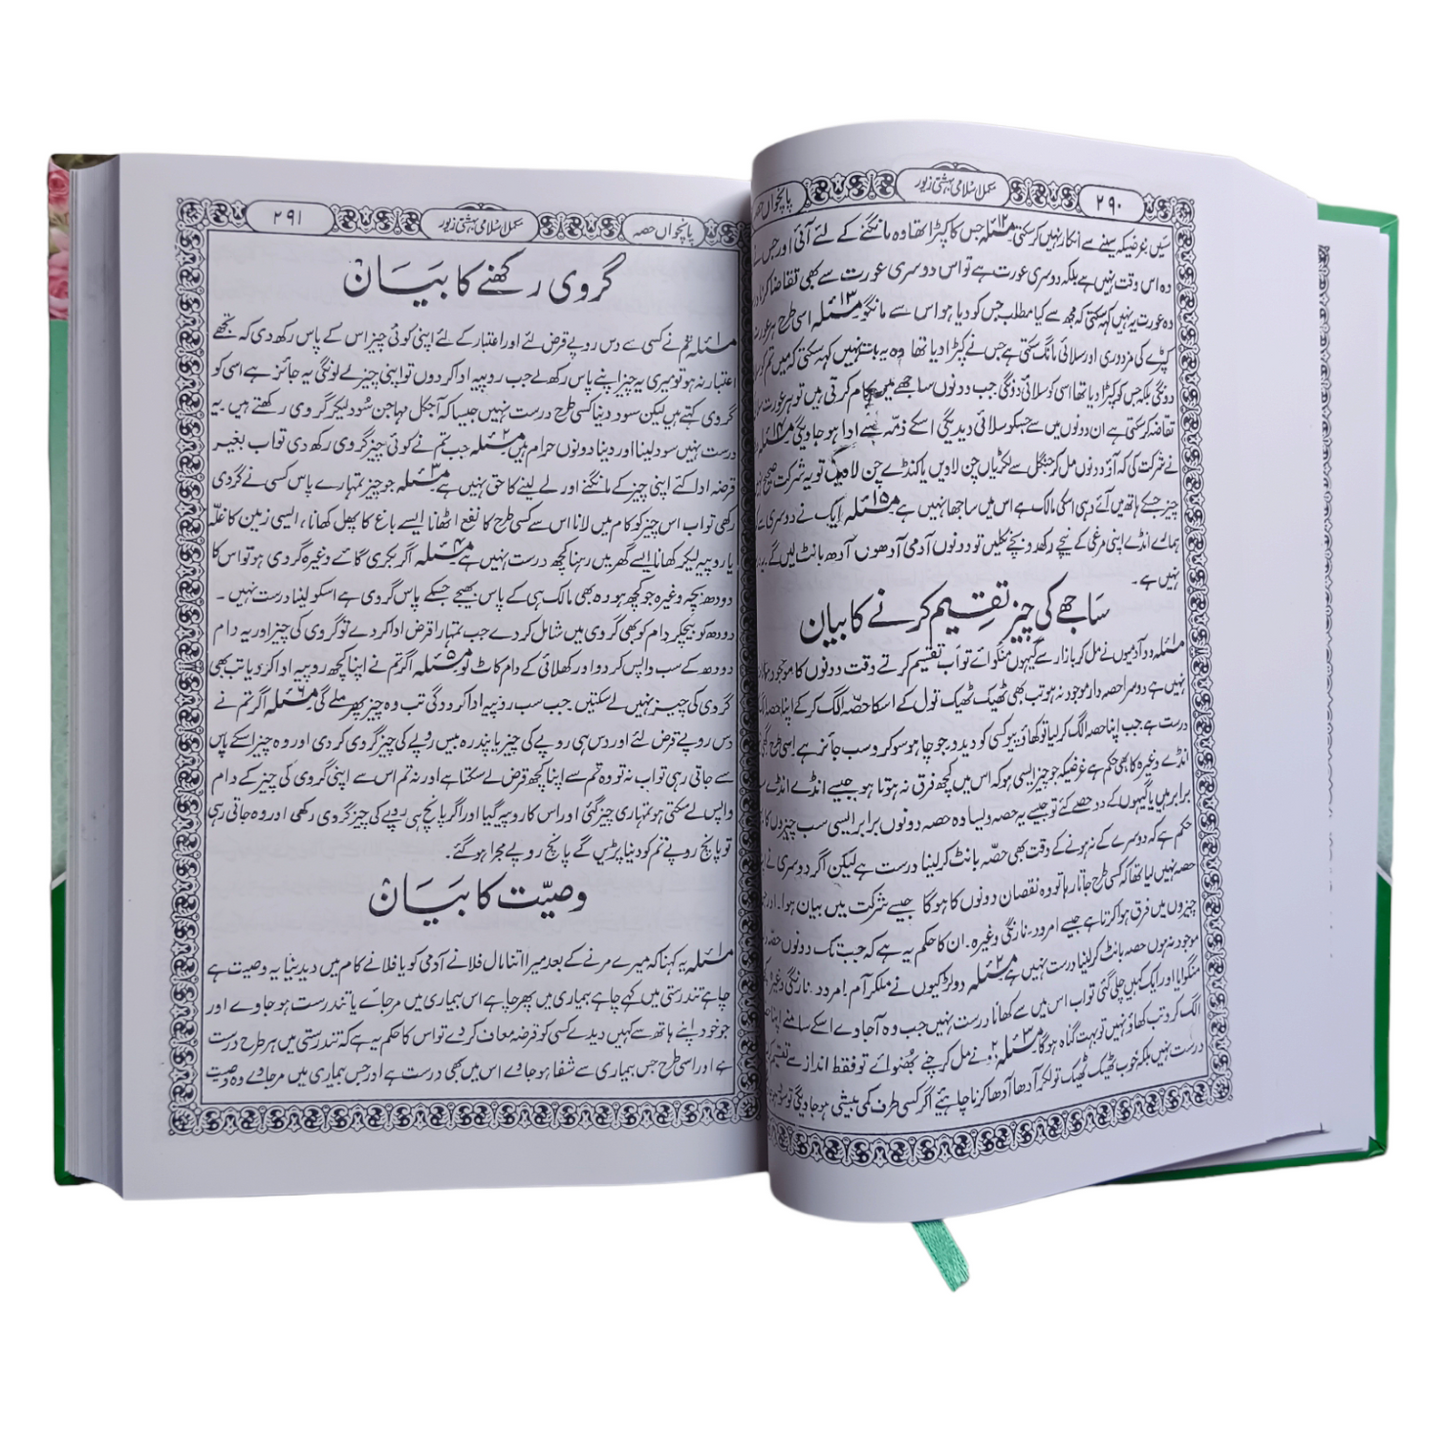 ۲۹۰
مکمل اسلامی بہشتی زیور
پانچواں حصہ
سئیں غرضیکہ سینے سے انکار نہیں کر سکتی۔ مسئلہ ۱۲ جس کا کپڑا تھا وہ مانگنے کے لئے آئی اور جس
وہ اس وقت نہیں ہے بلکہ دوسری عورت ہے تو اس دوسری عورت سے بھی تقاضا کرنا
وہ عورت یہ نہیں کہہ سکتی کہ مجھ سے کیا مطلب جس کو دیا ہو اس سے مانگو مسئلہ ۱۳ اسی طرح ہر عورت
کپڑے کی مزدوری اور سلائی مانگ سکتی ہے جس نے کپڑا دیا تھا وہ یہ بات نہیں کہہ سکتی کہ میں تم کو
دونگی بلکہ جس کو کپڑا دیا تھا اسی کو سلائی دونگی جب دونوں ساجھے میں کام کرتی ہیں تو ہر عورت
تقاضہ کر سکتی ہے ان دونوں میں سے جسکو سلائی دیدیگی اسکے ذمہ سے ادا ہو جاویگی مسئلہ ۱۴
نے شرکت کی کہ آؤ دونوں مل کر جنگل سے لکڑیاں چن لاویں یا کنڈے چن لاویں تو یہ شرکت صحیح
چیز جسکے ہاتھ میں آئے وہی اسکی مالک ہے اس میں ساجھا نہیں ہے مسئلہ ۱۵ ایک نے دوسری سے
ہمارے انڈے اپنی مرغی کے نیچے رکھ دو بچے نکلیں تو دونوں آدمی آدھوں آدھ بانٹ لیں گے
نہیں ہے۔
ساجھے کی چیز تقسیم کرنے کا بیان
مسئلہ ۱ دو آدمیوں نے مل کر بازار سے گیہوں منگوائے تو اب تقسیم کرتے وقت دونوں کا موجود
نہیں ہے دوسرا حصہ دار موجود نہ ہو تب بھی ٹھیک ٹھیک تول کے اسکا حصہ الگ کر کے اپنا حصہ
درست ہے جب اپنا حصہ الگ کر لیا تو کھاؤ پیو کسی کو دیدو جو چاہو سو کرو سب جائز ہے اسی طرح
انڈے وغیرہ کا بھی حکم ہے غرضیکہ جو چیز ایسی ہو کہ اس میں کچھ فرق نہ ہوتا ہو جیسے انڈے انڈے
برابر ہیں یا گیہوں کے دو حصے کئے تو جیسے یہ حصہ ویسا وہ حصہ دونوں برابر ایسی سب چیزوں کا
حکم ہے کہ دوسرے کے نہ ہونے کے وقت بھی حصہ بانٹ کر لینا درست ہے لیکن اگر دوسری نے
حصہ نہیں لیا تھا کہ کسی طرح جاتا رہا تو وہ نقصان دونوں کا ہوگا جیسے شرکت میں بیان ہوا۔ اور
چیزوں میں فرق ہوا کرتا ہے جیسے امرود۔ نارنگی وغیرہ۔ ان کا حکم یہ ہے کہ جب تک دونوں حصہ
موجود نہ ہوں حصہ بانٹ کر لینا درست نہیں ہے مسئلہ ۲ دو لڑکیوں نے ملکر آم۔ امرود۔ نارنگی وغیرہ
منگوایا اور ایک کہیں چلی گئی تو اب اس میں سے کھانا درست نہیں جب وہ آجاوے اسکے سامنے اپنا حصہ
الگ کر و تب کھاؤ نہیں تو بہت گناہ ہوگا مسئلہ ۳ دو نے مل کر چنے بھنوائے تو فقط انداز سے تقسیم
درست نہیں بلکہ خوب ٹھیک ٹھیک تول کر آدھا آدھا کرنا چاہیئے اگر کسی طرف کمی بیشی ہو جاویگی تو
پانچواں حصہ
مکمل اسلامی بہشتی زیور
۲۹۱
گروی رکھنے کا بیان
مسئلہ ۱ تم نے کسی سے دس روپے قرض لئے اور اعتبار کے لئے اپنی کوئی چیز اس کے پاس رکھ دی کہ تجھے
اعتبار نہ ہو تو میری یہ چیز اپنے پاس رکھ لے جب روپیہ ادا کر دوں تو اپنی چیز لے لونگی یہ جائز ہے اسی کو
گروی کہتے ہیں لیکن سود دینا کسی طرح درست نہیں جیسا کہ آجکل مہاجن سود لیکر گروی رکھتے ہیں یہ
درست نہیں سود لینا اور دینا دونوں حرام ہیں مسئلہ ۲ جب تم نے کوئی چیز گروی رکھ دی تو اب بغیر
قرضہ ادا کئے اپنی چیز کے مانگنے اور لے لینے کا حق نہیں ہے مسئلہ ۳ جو چیز تمہارے پاس کسی نے گروی
رکھی تو اب اس چیز کو کام میں لانا اس سے کسی طرح کا نفع اٹھانا ایسے باغ کا پھل کھانا، ایسی زمین کا غلہ
یا روپیہ لیکر کھانا ایسے گھر میں رہنا کچھ درست نہیں ہے مسئلہ ۴ اگر بکری گائے وغیرہ گروی ہو تو اس کا
دودھ بچہ وغیرہ جو کچھ ہو وہ بھی مالک ہی کے پاس بھیجے جسکے پاس گروی ہے اسکو لینا درست نہیں۔
دودھ کو بیچکر دام کو بھی گروی میں شامل کر دے جب تمہارا قرض ادا کر دے تو گروی کی چیز اور یہ دام
دودھ کے سب واپس کر دو اور کھلائی کے دام کاٹ لو مسئلہ ۵ اگر تم نے اپنا کچھ روپیہ ادا کر دیا تب بھی
گروی کی چیز نہیں لے سکتیں۔ جب سب روپیہ ادا کر دوگی تب وہ چیز پھر ملے گی مسئلہ ۶ اگر تم نے
دس روپے قرض لئے اور دس ہی روپے کی چیز یا پندرہ بیس روپے کی چیز گروی کر دی اور وہ چیز اسکے پاس
سے جاتی رہی تو اب نہ تو وہ تم سے اپنا کچھ قرض لے سکتا ہے اور نہ تم اس سے اپنی گروی کی چیز کے دام
واپس لے سکتی ہو تمہاری چیز گئی اور اس کا روپیہ گیا اور اگر پانچ ہی روپے کی چیز گروی رکھی اور وہ جاتی رہی
تو پانچ روپے تم کو دینا پڑیں گے پانچ روپے مجرا ہو گئے۔
وصیّت کا بیان
مسئلہ ۱ یہ کہنا کہ میرے مرنے کے بعد میرا اتنا مال فلانے آدمی کو یا فلانے کام میں دیدینا یہ وصیت ہے
چاہے تندرستی میں کہے چاہے بیماری میں پھر چاہے اس بیماری میں مر جائے یا تندرست ہو جاوے اور
جو خود اپنے ہاتھ سے کہیں دیدے کسی کو قرضہ معاف کر دے تو اس کا حکم یہ ہے کہ تندرستی میں ہر طرح درست
ہے اور اسی طرح جس بیماری سے شفا ہو جاوے اس میں بھی درست ہے اور جس بیماری میں مر جاوے وہ وصیت